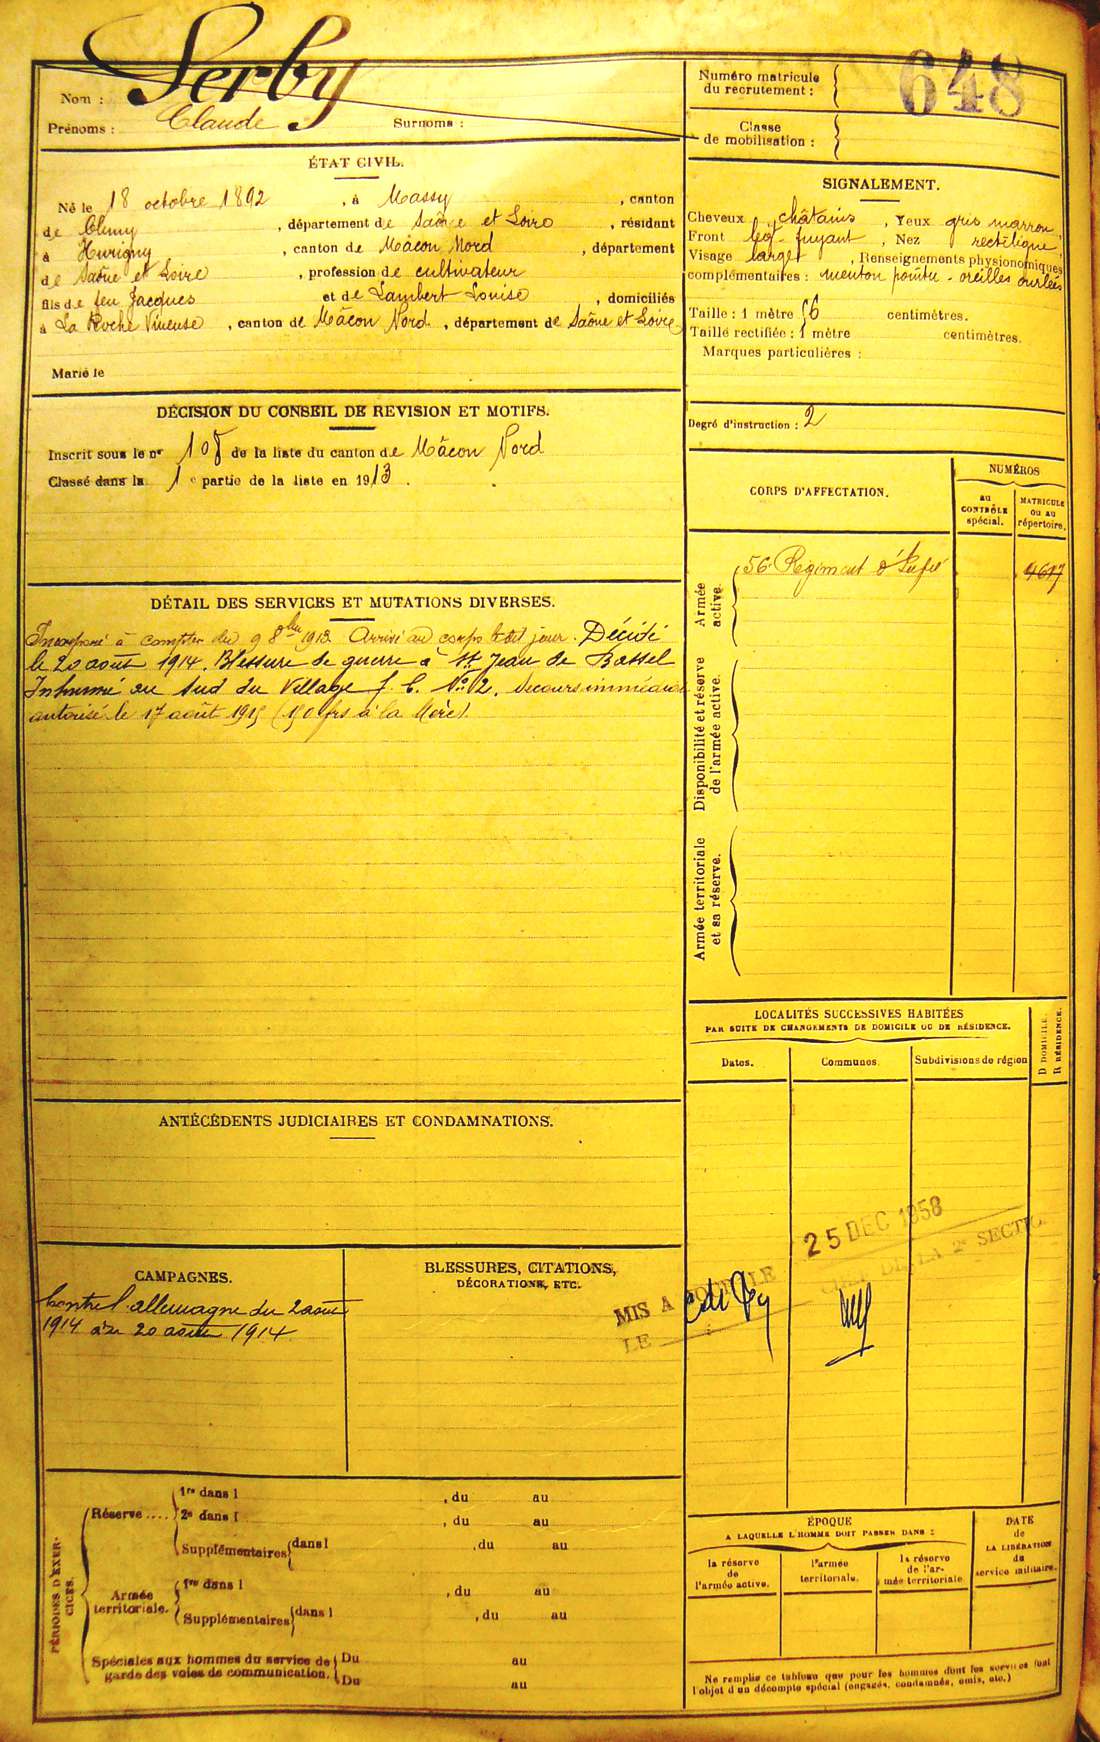 Nom : Serby
Prénoms : Claude Surnoms :
Numéro matricule du recrutement : 648
Classe de mobilisation :
ÉTAT CIVIL.
Né le 18 octobre 1892, à Massy, canton
de Cluny, département de Saône et Loire, résidant
à Hurigny, canton de Mâcon Nord, département
de Saône et Loire, profession de cultivateur
fils de feu Jacques et de Lambert Louise, domiciliés
à La Roche Vineuse, canton de Mâcon Nord, département de Saône et Loire
Marié le
SIGNALEMENT.
Cheveux châtains, Yeux gris marron
Front lég. fuyant, Nez rectiligne
Visage large, Renseignements physionomiques
complémentaires : menton pointu - oreilles ourlées
Taille : 1 mètre 66 centimètres.
Taille rectifiée : 1 mètre centimètres.
Marques particulières :
Degré d'instruction : 2
DÉCISION DU CONSEIL DE REVISION ET MOTIFS.
Inscrit sous le no 108 de la liste du canton de Mâcon Nord
Classé dans la 1e partie de la liste en 1913.
CORPS D'AFFECTATION.
NUMÉROS
au CONTRÔLE spécial.
MATRICULE ou au répertoire.
Armée active.
56e Régiment d'Infie 4617
Disponibilité et réserve de l'armée active.
Armée territoriale et sa réserve.
DÉTAIL DES SERVICES ET MUTATIONS DIVERSES.
Incorporé à compter du 9 8bre 1913. Arrivé au corps le dit jour. Décédé
le 20 août 1914. Blessure de guerre à St Jean de Bassel
Inhumé au Sud du Village f. C. No 2. Secours immédiat
autorisé le 17 août 1915 (150 frs à la Mère).
LOCALITÉS SUCCESSIVES HABITÉES
PAR SUITE DE CHANGEMENTS DE DOMICILE OU DE RÉSIDENCE.
Dates. Communes. Subdivisions de région
D DOMICILE.
R RÉSIDENCE.
ANTÉCÉDENTS JUDICIAIRES ET CONDAMNATIONS.
CAMPAGNES.
Contre l'allemagne du 2 août
1914 au 20 août 1914
BLESSURES, CITATIONS,
DÉCORATIONS, ETC.
25 DEC 1958
MIS A
LE
DE LA 2e SECTION
PÉRIODES D'EXERCICES.
Réserve .... 1re dans l , du au
2e dans l , du au
Supplémentaires dans l , du au
Armée territoriale. 1re dans l , du au
Supplémentaires dans l , du au
Spéciales aux hommes du service de garde des voies de communication. Du au
Du au
ÉPOQUE
A LAQUELLE L'HOMME DOIT PASSER DANS :
la réserve de l'armée active.
l'armée territoriale.
la réserve de l'armée territoriale.
DATE de LA LIBÉRATION du service militaire.
Ne remplir ce tableau que pour les hommes dont les services font
l'objet d'un décompte spécial (engagés, condamnés, omis, etc.)